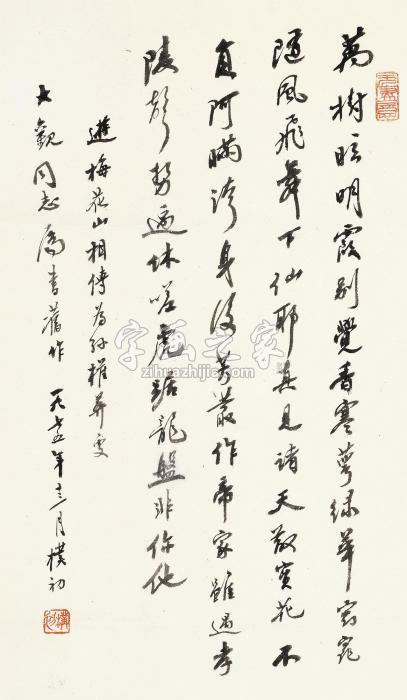 萬樹眩明霞别覺香寒萼緑華窈窕
随風飛舞下仙耶真見諸天散寶花不
負阿瞞誇身後芳叢作帝家雖過孝
陵聲勢遜休嗟虎踞龍盤非你他
遊梅花山相傳為孫權葬處
大觀同志屬書舊作 一九七五年十二月 樸初
字画之家
zihuazhijia.com